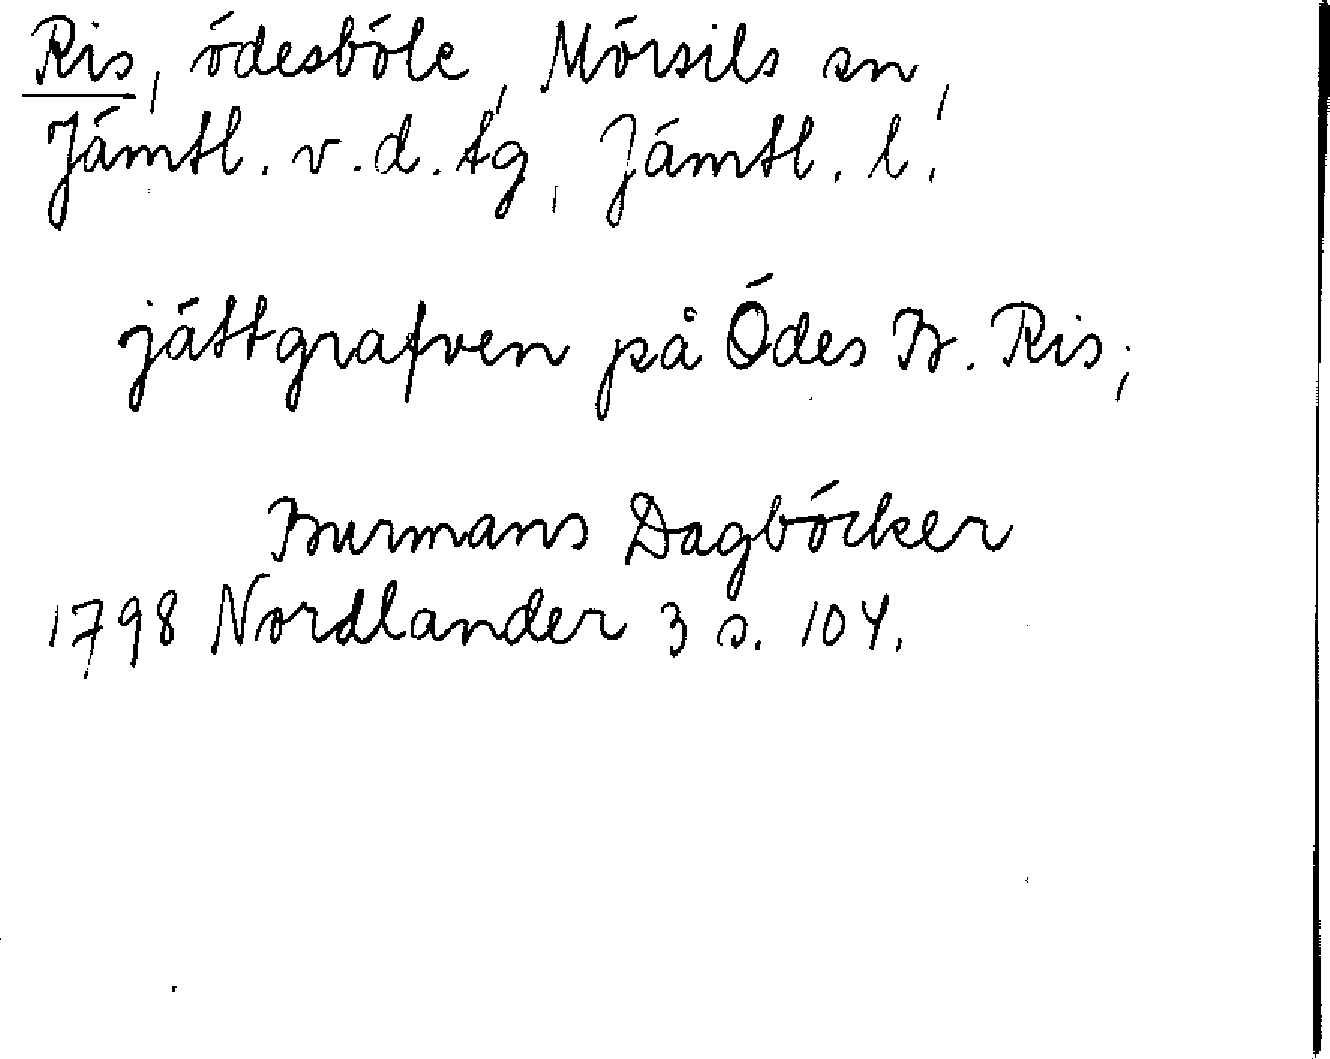 Ris, ödesböle, Mörsils sn,
Jämtl. v. d. tg, Jämtl. l.
jättgrafven på Ödes B. Ris;
Burmans Dagböcker
1798 Nordlander 3 s. 104.